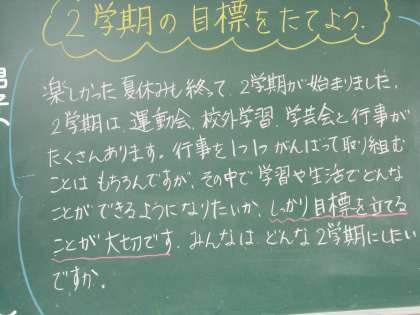 2学期の目標をたてよう.
楽しかった夏休みも終て、2学期が始まりました。
2学期は、運動会、校外学習、学芸会と行事が
たくさんあります。行事を1つ1つがんばって取り組む
ことはもちろんですが、その中で学習や生活でどんな
ことができるようになりたいか、しっかり目標を立てる
ことが大切です。みんなは、どんな2学期にしたい
ですか。